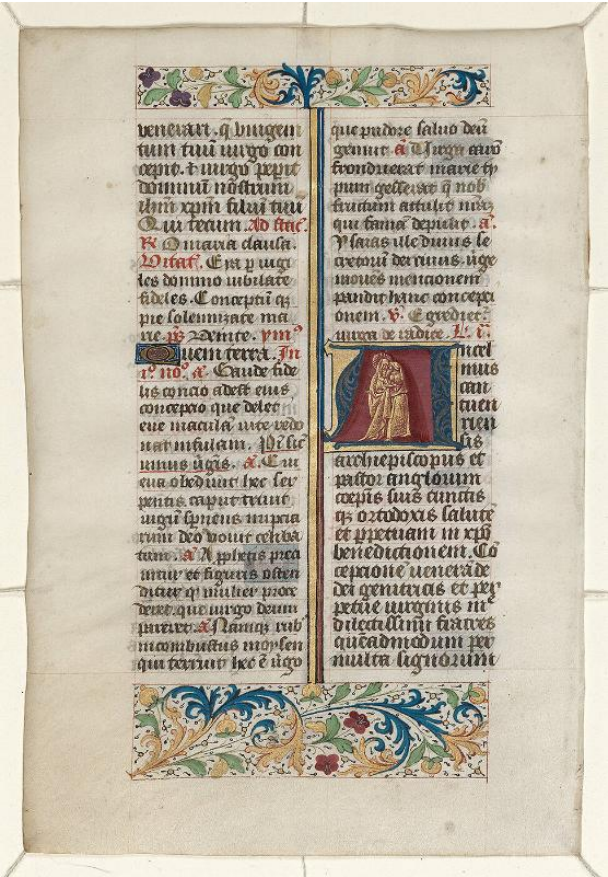 venerari. q̄ vnigeni
tum tuū uirgo con
cepit. ⁊ uirgo peperit
dominū nostrum
ihm̄ xpm̄ filiū tuū
Qui tecum. Ad
R̷ O maria clausa.
Eya p uigi
les domino iubilate
fideles. Conceptū q̄
pie solemnizate ma
rie. p̄s Venite. ymˢ
Quem terra. In
i° no° a Gaude fide
lis concio adest eius
conceptio que delet
eue maculā uite redo
nat insulam.
a Cui
eua obediuit hec ser
pentis caput triuit
uirgū
deo vouit celiba
tum. a A pphetis preci
nitur et figuris osten
ditur q̄ mulier proce
deret que uirgo deum
pareret. a Namq; rub⁹
incombustus moysen
qui terruit hec ē uirgo
que pudore saluo deū
genuit. a Uirga aarō
fronduerat marie ty
pum gesserat q̄ nob̄
fructum attulit
qui famē depulit. a
Ysaias ille diuus se
cretorū dei ciuus uirge
mouēs mentionem
pandit hanc concepti
onem. V̷. Egrediet᷑
uirga de radice. L. i.
Ancel
mus
can
tuari
ensis
archiepiscopus et
pastor anglorum
coepīs suis cunctis
q; ortodoxis salutē
et ppetuam in xpō
benedictionem. Cō
cepcione uenerāde
dei genitricis et per
petue uirginis mᵉ
dilectissimi fratres
quēadmodum per
multa signorum